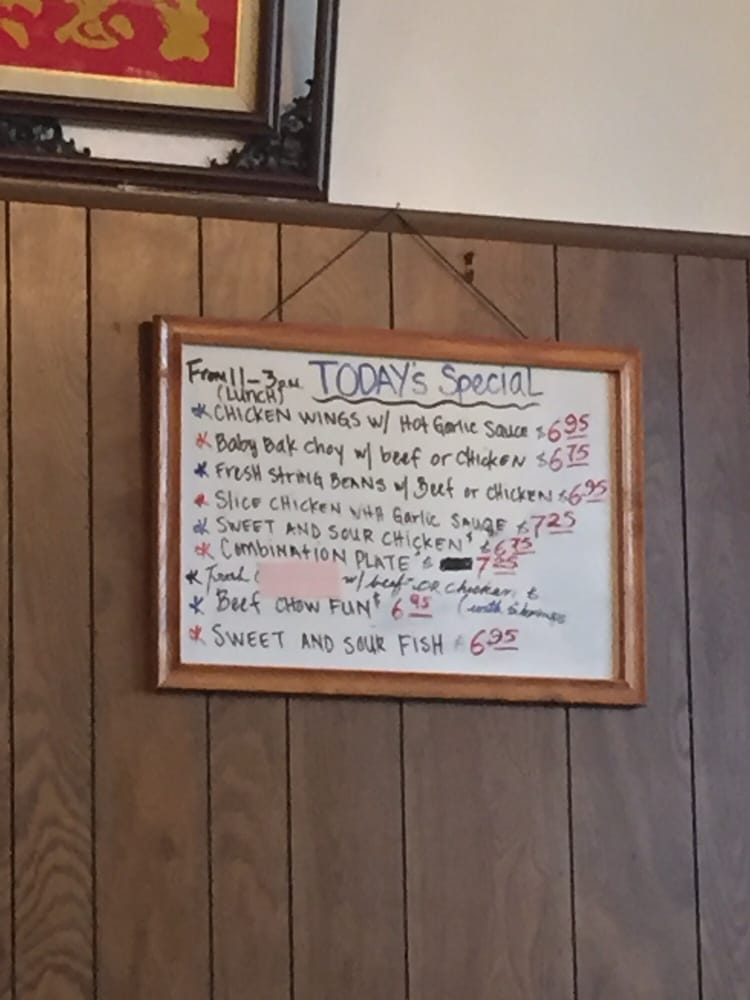 From 11-3p.m. TODAY's Special
(Lunch)
* CHICKEN WINGS W/ Hot Garlic Sauce $6.95
* Baby Bak Choy w/ beef or CHICKEN $6.75
* FRESH STRING BEANS w/ Beef or CHICKEN $6.95
* SLICE CHICKEN with Garlic SAUGE $7.25
* SWEET AND SOUR CHICKEN $6.75
* COMBINATION PLATE'S 7.25
* w/ beef OR chicken
* Beef CHOW FUN $6.95 (with
* SWEET AND SOUR FISH $6.95